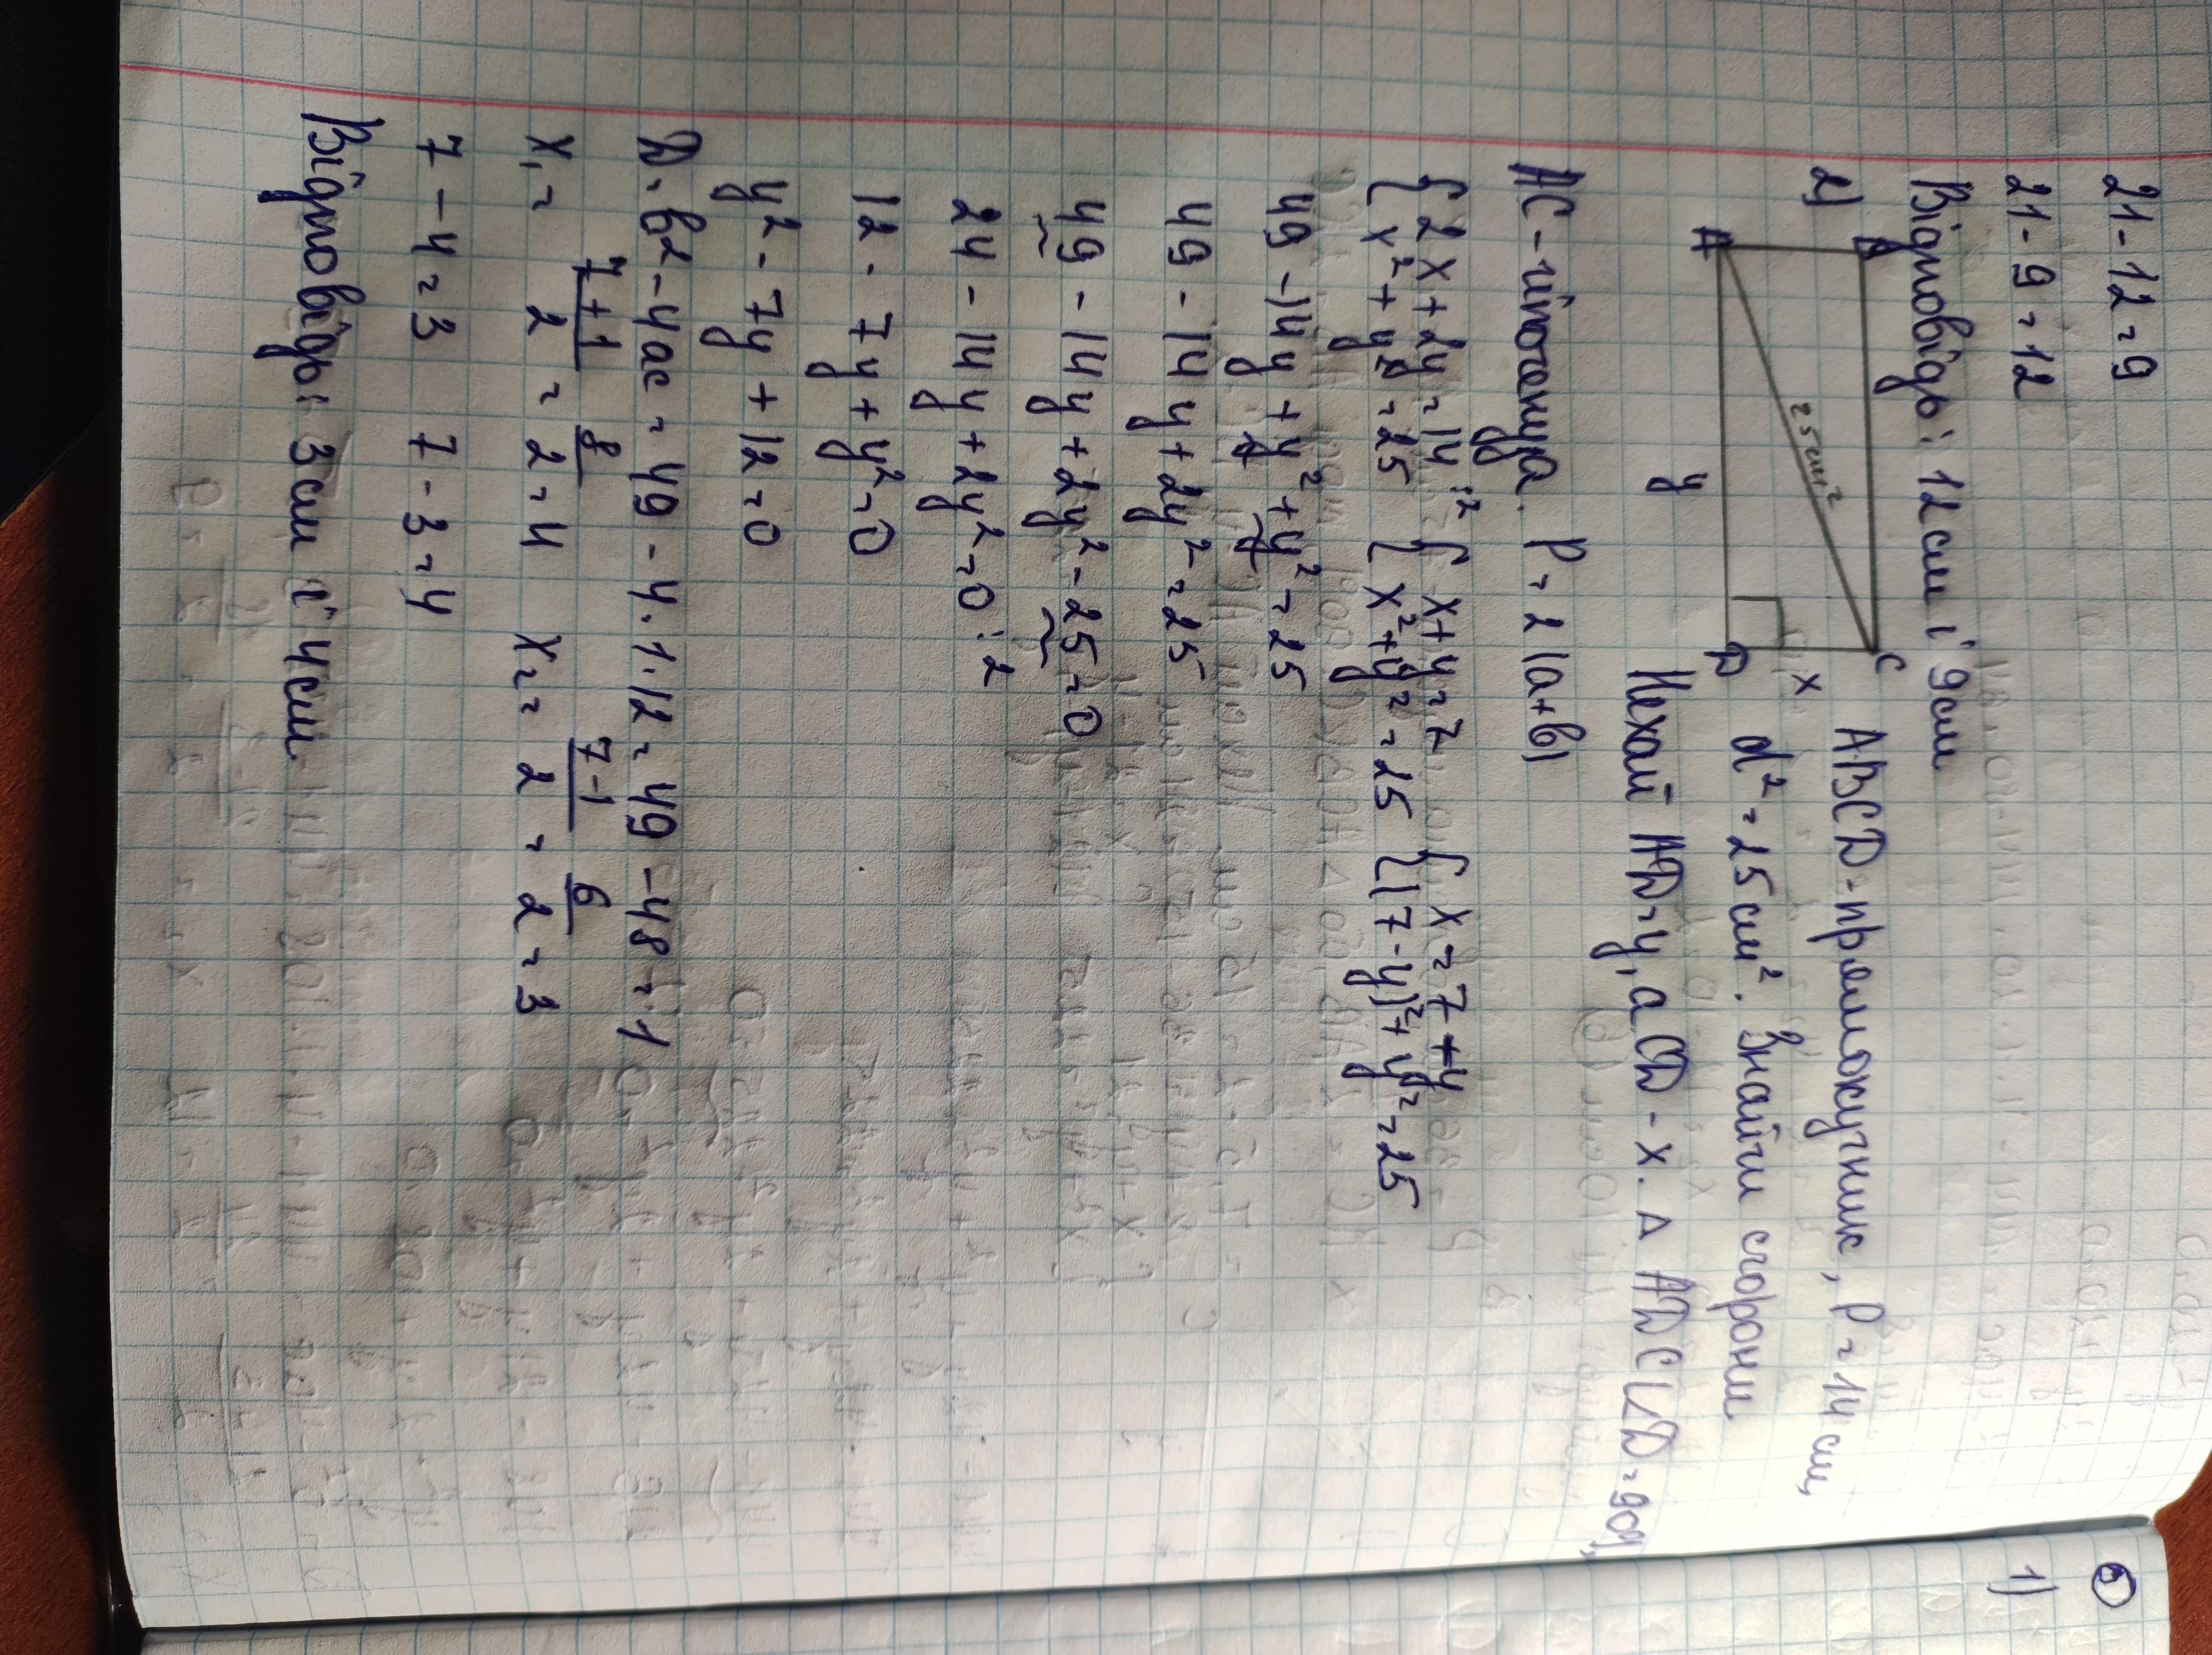 21-12=9
21-9=12
Відповідь: 12см і 9см
2)
B
C
A
D
25см²
x
y
ABCD-прямокутник, P=14см,
d²=25см². Знайти сторони
Нехай AD=y, а CD-x. △ ADC (∠D=90°,
AC-гіпотенуза. P=2(a+b)
{2x+2y=14 :2 {x+y=7 {x=7-y
{x²+y²=25 {x²+y²=25 {(7-y)²+y²=25
49-14y+y²+y²=25
49-14y+2y²=25
49-14y+2y²-25=0
24-14y+2y²=0 :2
12-7y+y²=0
y²-7y+12=0
D=b²-4ac=49-4·1·12=49-48=1
x₁=7+1/2=8/2=4 x₂=7-1/2=6/2=3
7-4=3 7-3=4
Відповідь: 3см і 4см
1)